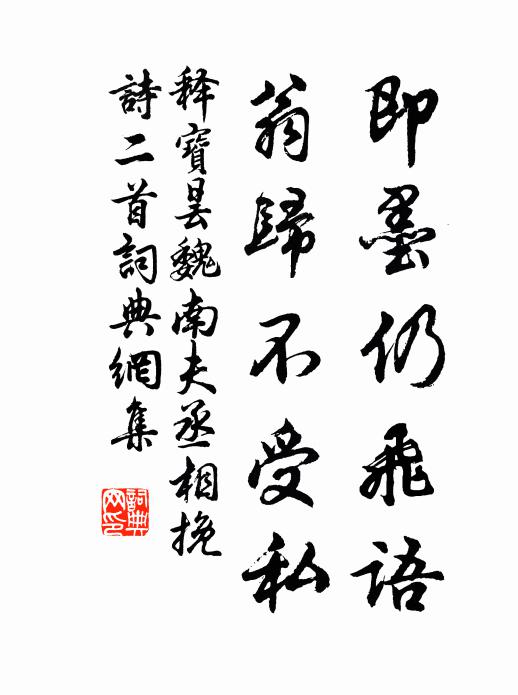 即墨仍飛語
翁歸不受私
释寶曇魏南夫丞相挽
詩二首詞典網集
詞典
网印